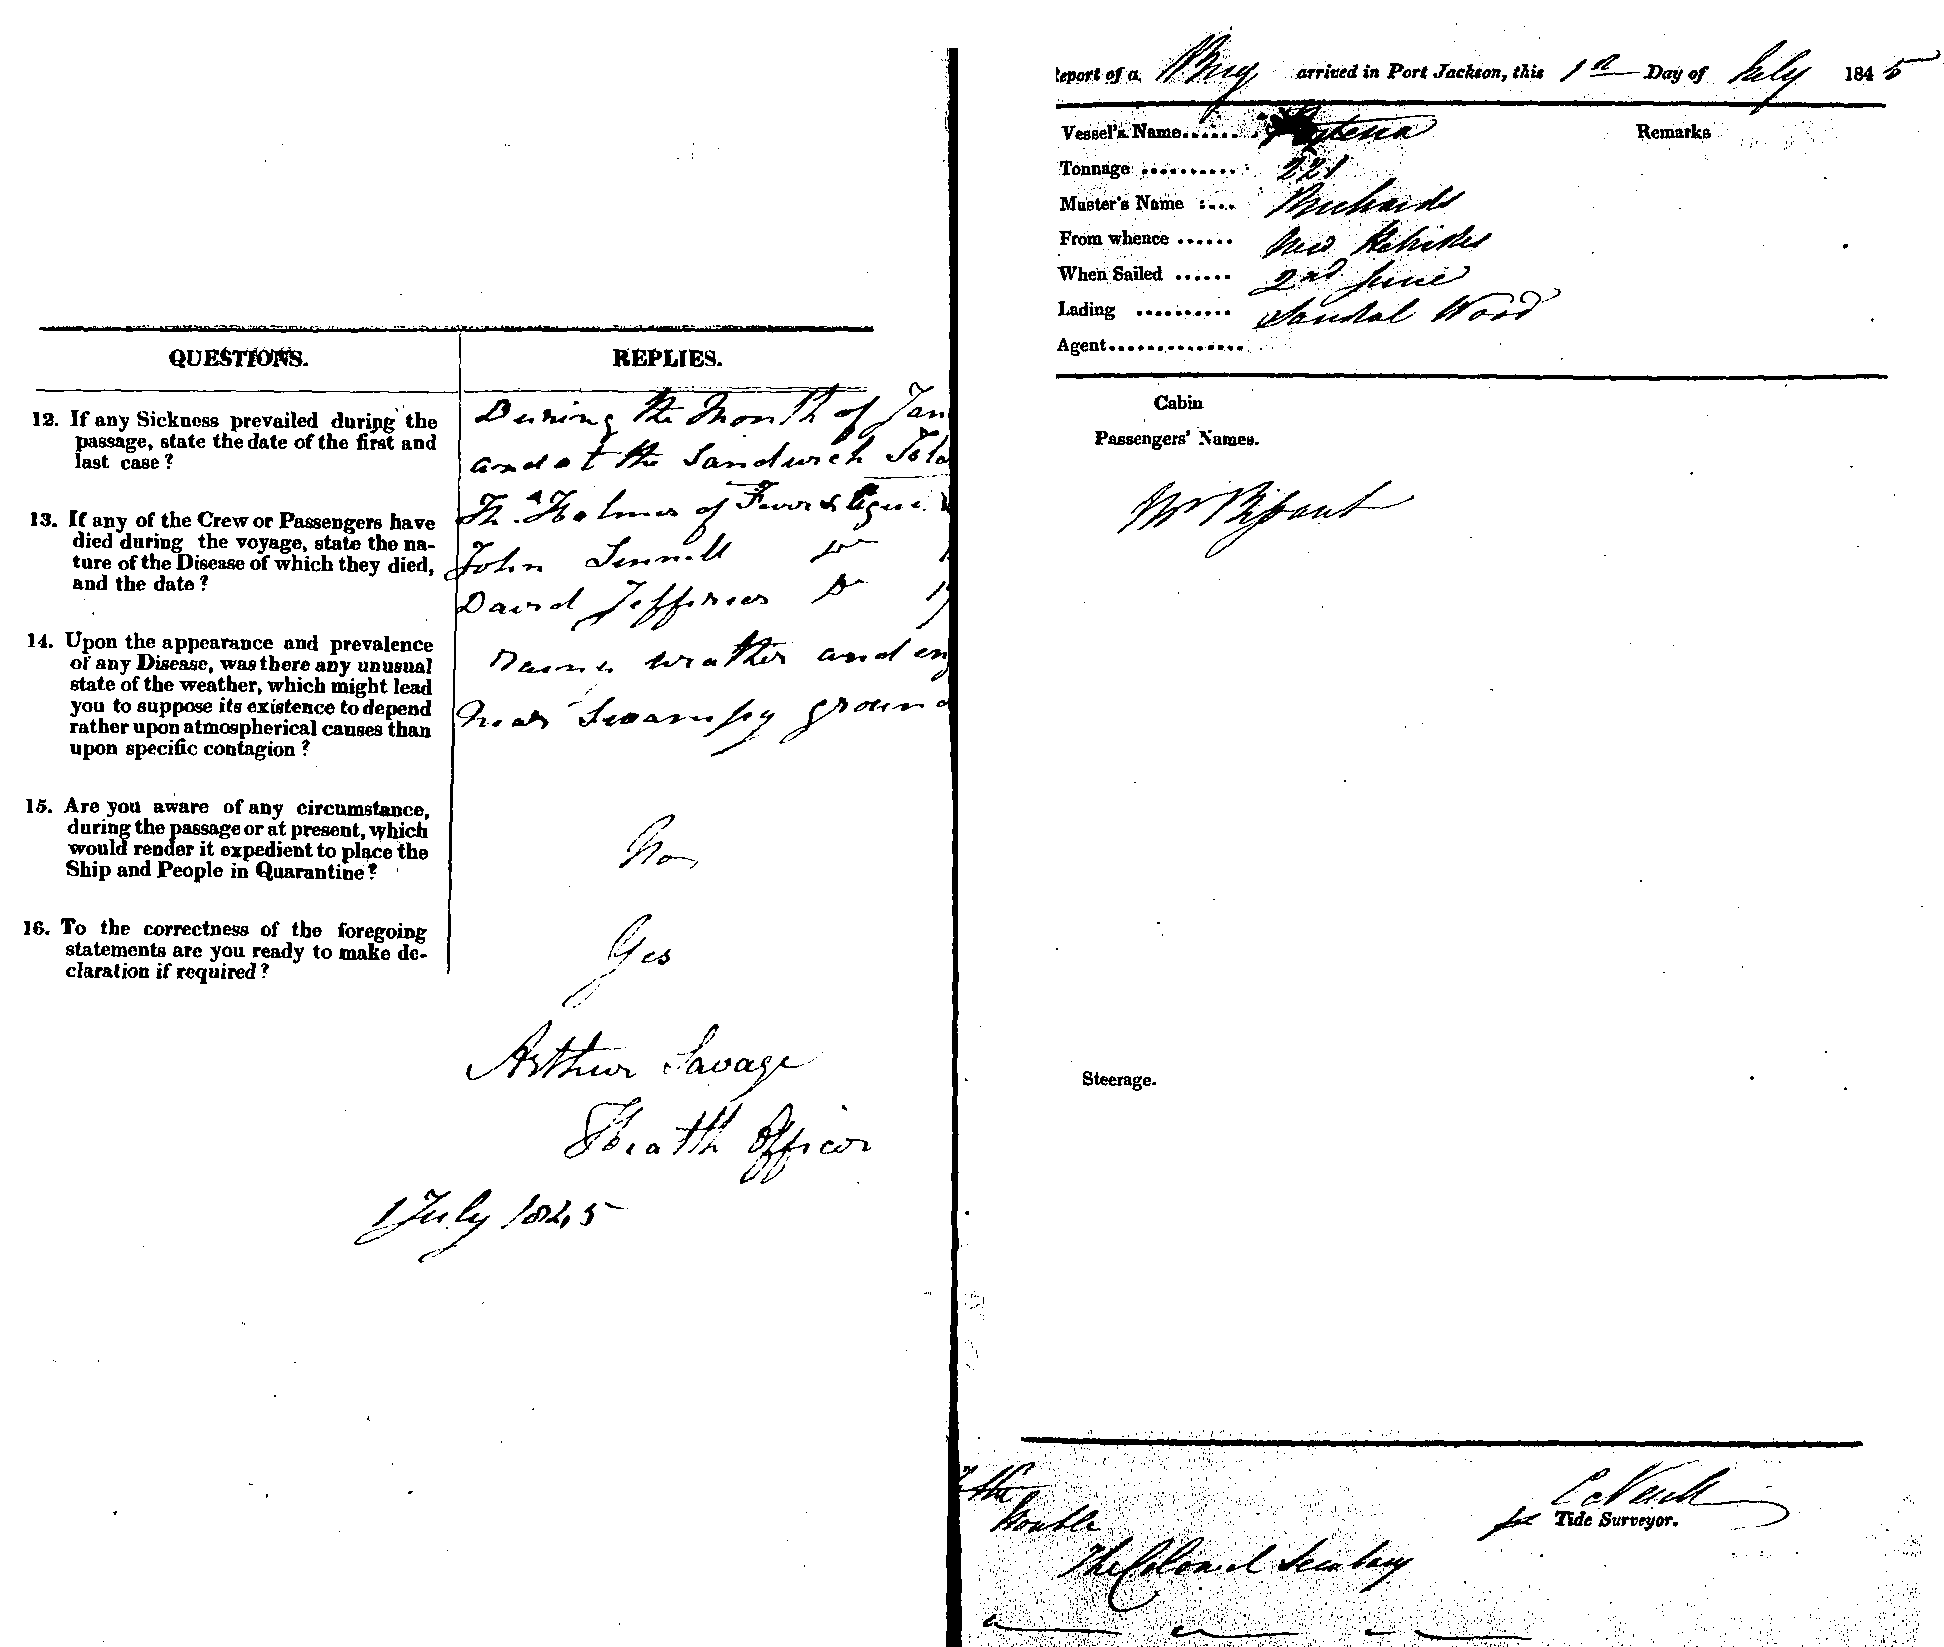 QUESTIONS.
REPLIES.
12. If any Sickness prevailed during the
passage, state the date of the first and
last case?
During the Month of Jan
and at the Sandwich Isla
13. If any of the Crew or Passengers have
died during the voyage, state the na-
ture of the Disease of which they died,
and the date?
Th. Holmes of Fever & Ague
John
David Jefferies Do
14. Upon the appearance and prevalence
of any Disease, was there any unusual
state of the weather, which might lead
you to suppose its existence to depend
rather upon atmospherical causes than
upon specific contagion?
weather and
near Swampy ground
15. Are you aware of any circumstance,
during the passage or at present, which
would render it expedient to place the
Ship and People in Quarantine?
No
16. To the correctness of the foregoing
statements are you ready to make de-
claration if required?
Yes
Arthur Savage
Health Officer
1 July 1845
Report of a Brig arrived in Port Jackson, this 1st Day of July 1845
Vessel's Name
Remarks
Tonnage 221
Master's Name Richards
From whence New Hebrides
When Sailed 2nd June
Lading Sandal Wood
Agent
Cabin
Passengers' Names.
Mr
Steerage.
for Tide Surveyor.
To the
Honble
The Colonial Secretary